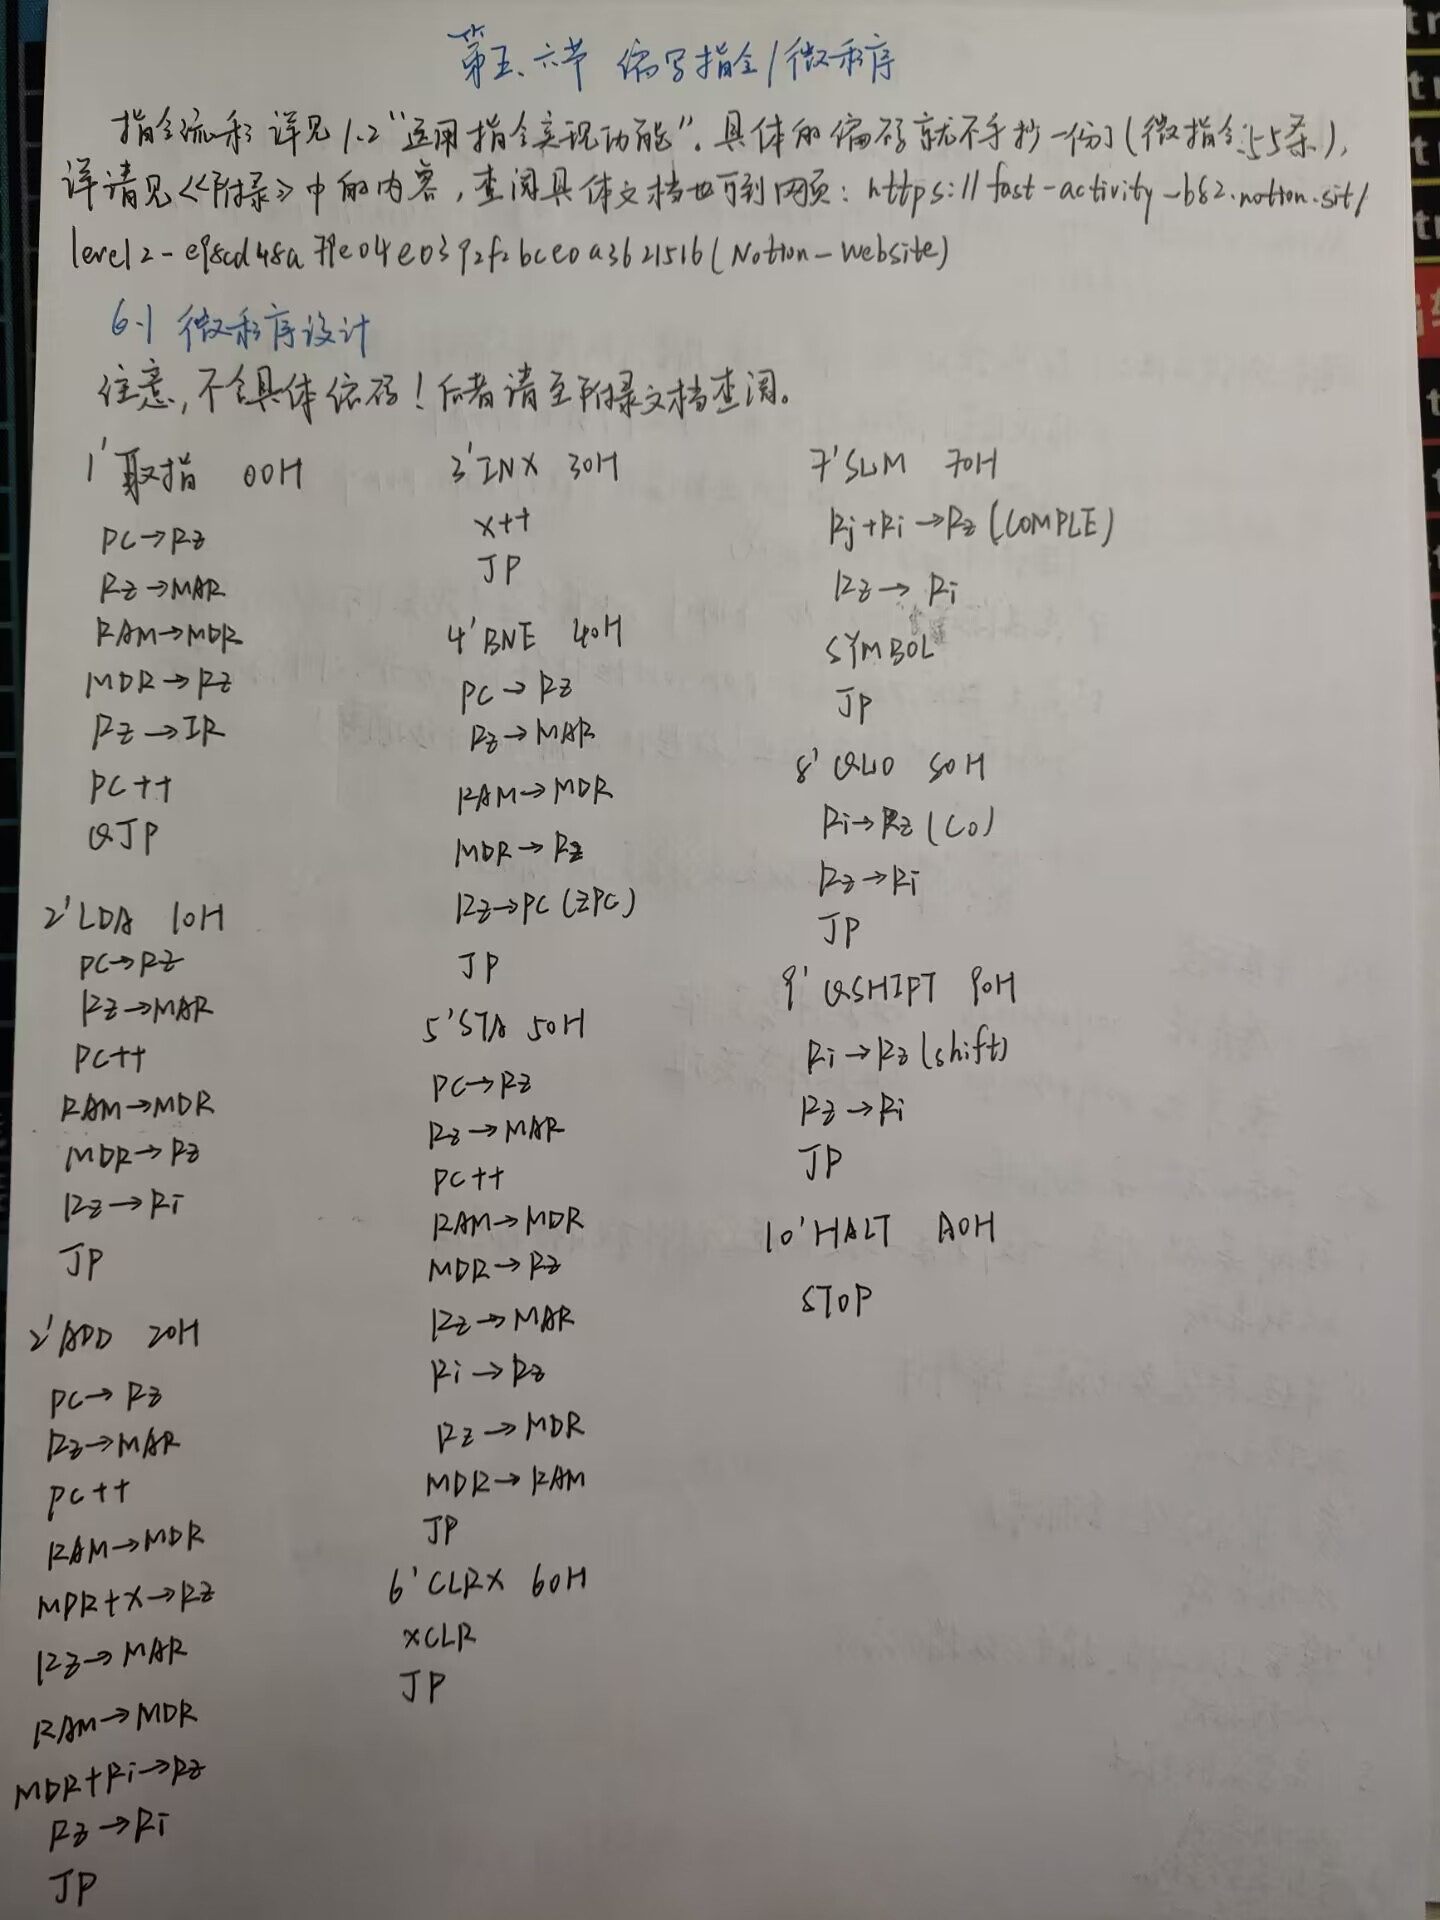 第五、六节 编写指令/微程序
指令流程详见1.2“运用指令实现功能”。具体的编码就不手抄一份了(微指令55条),
详请见《附录》中的内容,查阅具体文档也可到网页: https://fast-activity-b82.notion.sit/
level2-e98cd48a79e04e0392f2bce0a3621516(Notion-website)
6.1 微程序设计
注意,不含具体编码!后者请至附录文档查阅。
1' 取指 00H
PC→Rz
Rz→MAR
RAM→MDR
MDR→Rz
Rz→IR
PC++
QJP
2' LDA 10H
PC→Rz
Rz→MAR
PC++
RAM→MDR
MDR→Rz
Rz→Ri
JP
2' ADD 20H
PC→Rz
Rz→MAR
PC++
RAM→MDR
MDR+X→Rz
Rz→MAR
RAM→MDR
MDR+Ri→Rz
Rz→Ri
JP
3' INX 30H
X++
JP
4' BNE 40H
PC→Rz
Rz→MAR
RAM→MDR
MDR→Rz
Rz→PC(ZPC)
JP
5' STA 50H
PC→Rz
Rz→MAR
PC++
RAM→MDR
MDR→Rz
Rz→MAR
Ri→Rz
Rz→MDR
MDR→RAM
JP
6' CLRX 60H
XCLR
JP
7' SUM 70H
Rj+Ri→Rz(COMPLE)
Rz→Ri
SYMBOL
JP
8' QUO 80H
Ri→Rz(C0)
Rz→Ri
JP
9' QSHIFT 90H
Ri→Rz(shift)
Rz→Ri
JP
10' HALT A0H
STOP